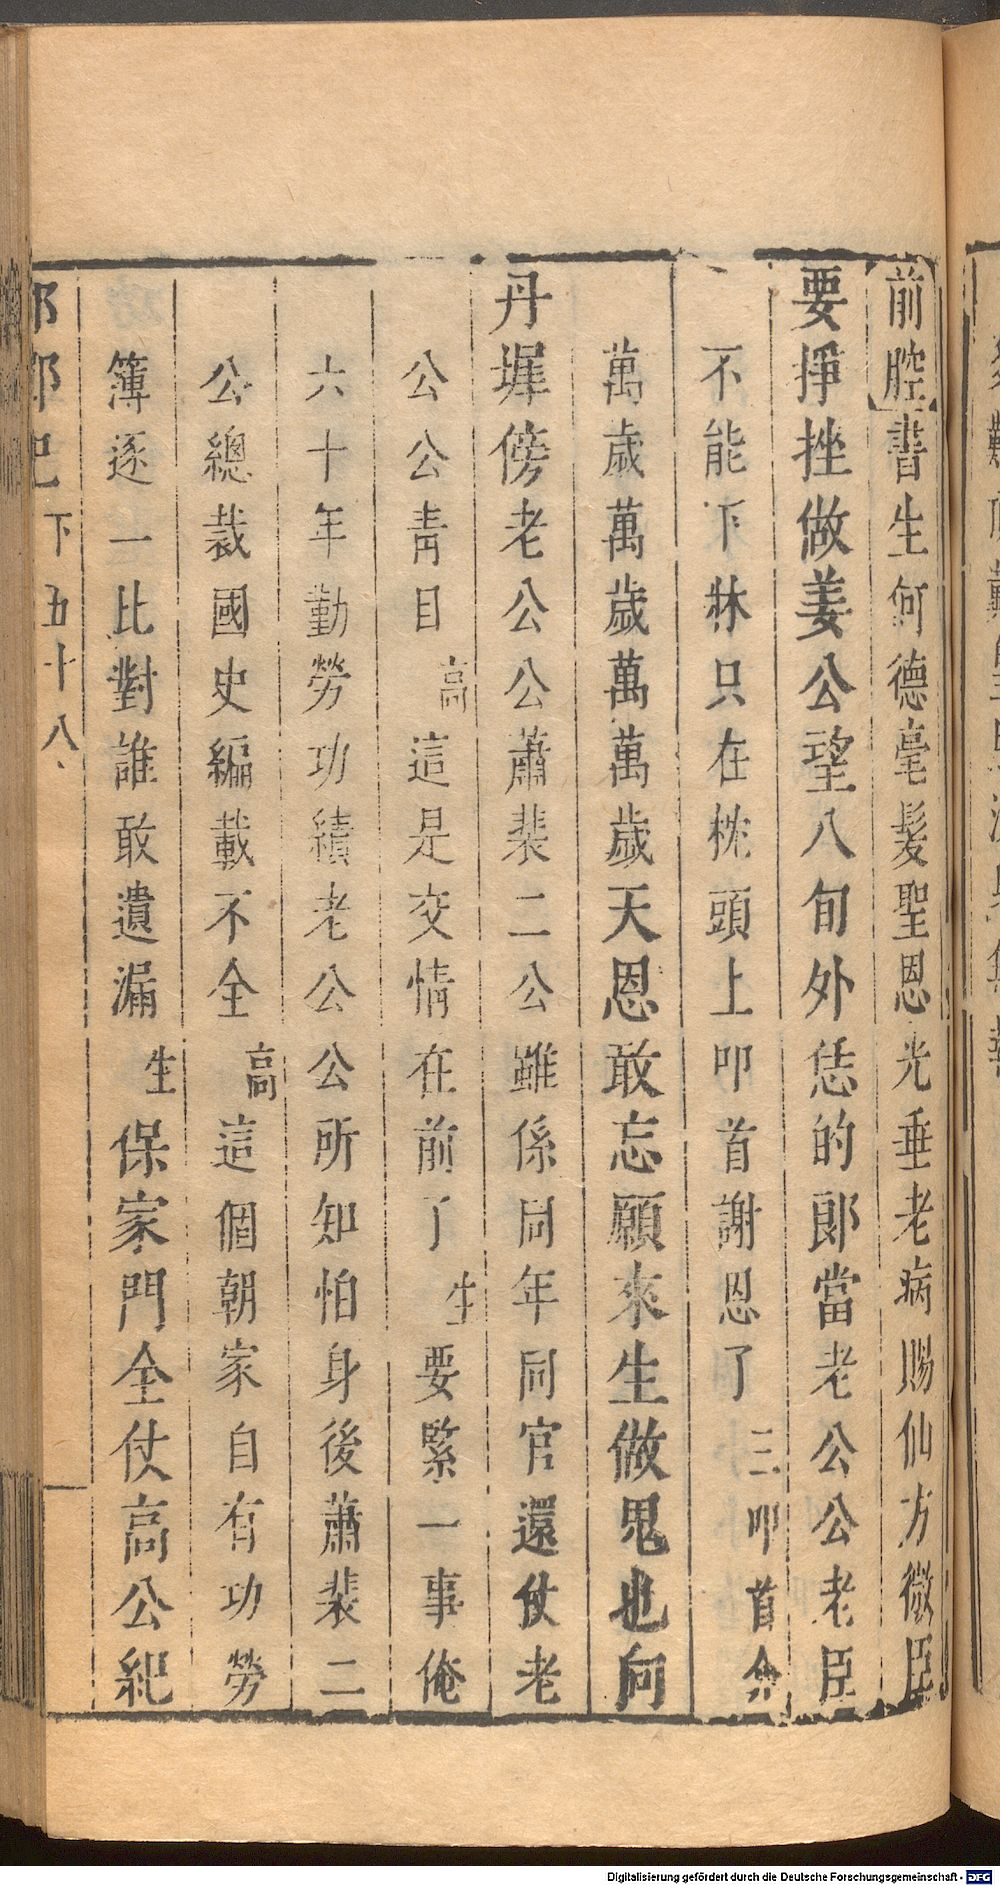 前腔書生何德毫髮聖恩光垂老病賜仙方微臣
要掙挫做姜公望八旬外恁的郎當老公公老臣
不能下牀只在枕頭上叩首謝恩了三叩首介
萬歲萬歲萬萬歲天恩敢忘願來生做鬼也向
丹墀傍老公公蕭裴二公雖係同年同官還仗老
公公靑目高這是交情在前了生要緊一事俺
六十年勤勞功績老公公所知怕身後蕭裴二
公總裁國史編載不全高這個朝家自有功勞
簿逐一比對誰敢遺漏生保家門全仗高公紀
邯鄲記下五十八
Digitalisierung gefördert durch die Deutsche Forschungsgemeinschaft - DFG